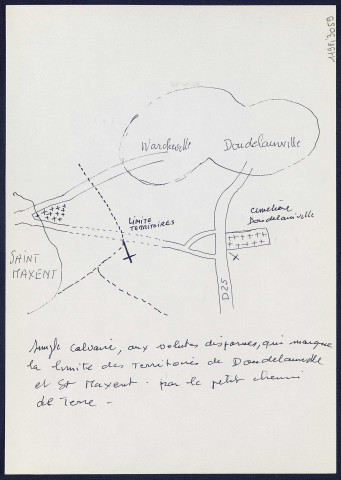 119FI3059
Warcheville
Doudelainville
LIMITE
TERRITOIRES
Cimetière
Doudelainville
SAINT
MAXENT
D25
Simple calvaire, aux volutes disparues, qui marque
la limite des Territoires de Doudelainville
et St Maxent - par le petit chemin
de Terre -